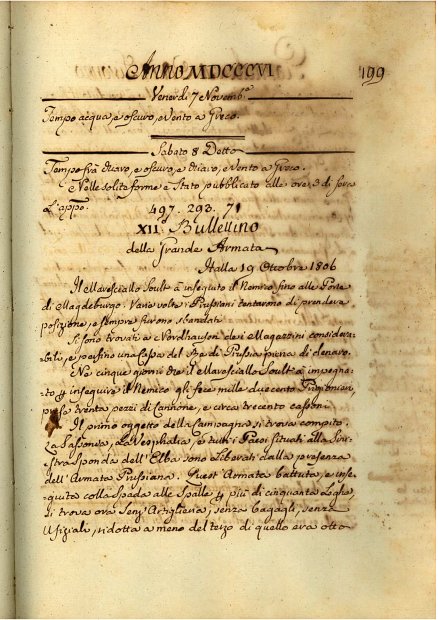 ANNO MDCCCVI
199
Venerdi 7 Novembe
Tempo acqua, e oscuro, e Vento a Greco.
Sabato 8 Detto
Tempo frà chiaro, e oscuro, e chiaro, e Vento a Greco.
Nelle solite forme e Stato pubblicato alle ore 3 di sera
L'appo.
497. 293. 71
XII. Bullettino
della Grande Armata
Halla 19 Ottobre 1806
Il Maresciallo Soult à inseguito il Nemico fino alle Porte
di Magdeburgo. Varie volte i Prussiani tentarono di prendere
posizione, e sempre furono sbandati.
Si sono trovati a Nordhausen dei Magazzini considera-
bili, e persino una Cassa del Re di Prussia piena di denaro.
Ne cinque giorni che il Maresciallo Soult à impegna-
to inseguire il Nemico gli fece mille duecento Prigionieri,
prese trenta pezzi di Cannone, e circa trecento cassoni.
Il primo oggetto della Campagna si trova compito.
La Sassonia, La Vesphalia, e tutti i Paesi situati alla Sini-
stra Sponda dell'Elba sono Liberati dalla presenza
dell'Armata Prussiana. Quest'Armata battuta, e inse-
guita colla Spada alle Spalle più di cinquanta Leghe,
si trova ora Senz'Artiglieria, senza bagagli, senza
Ufiziali, ridotta a meno del terzo di quello era otto